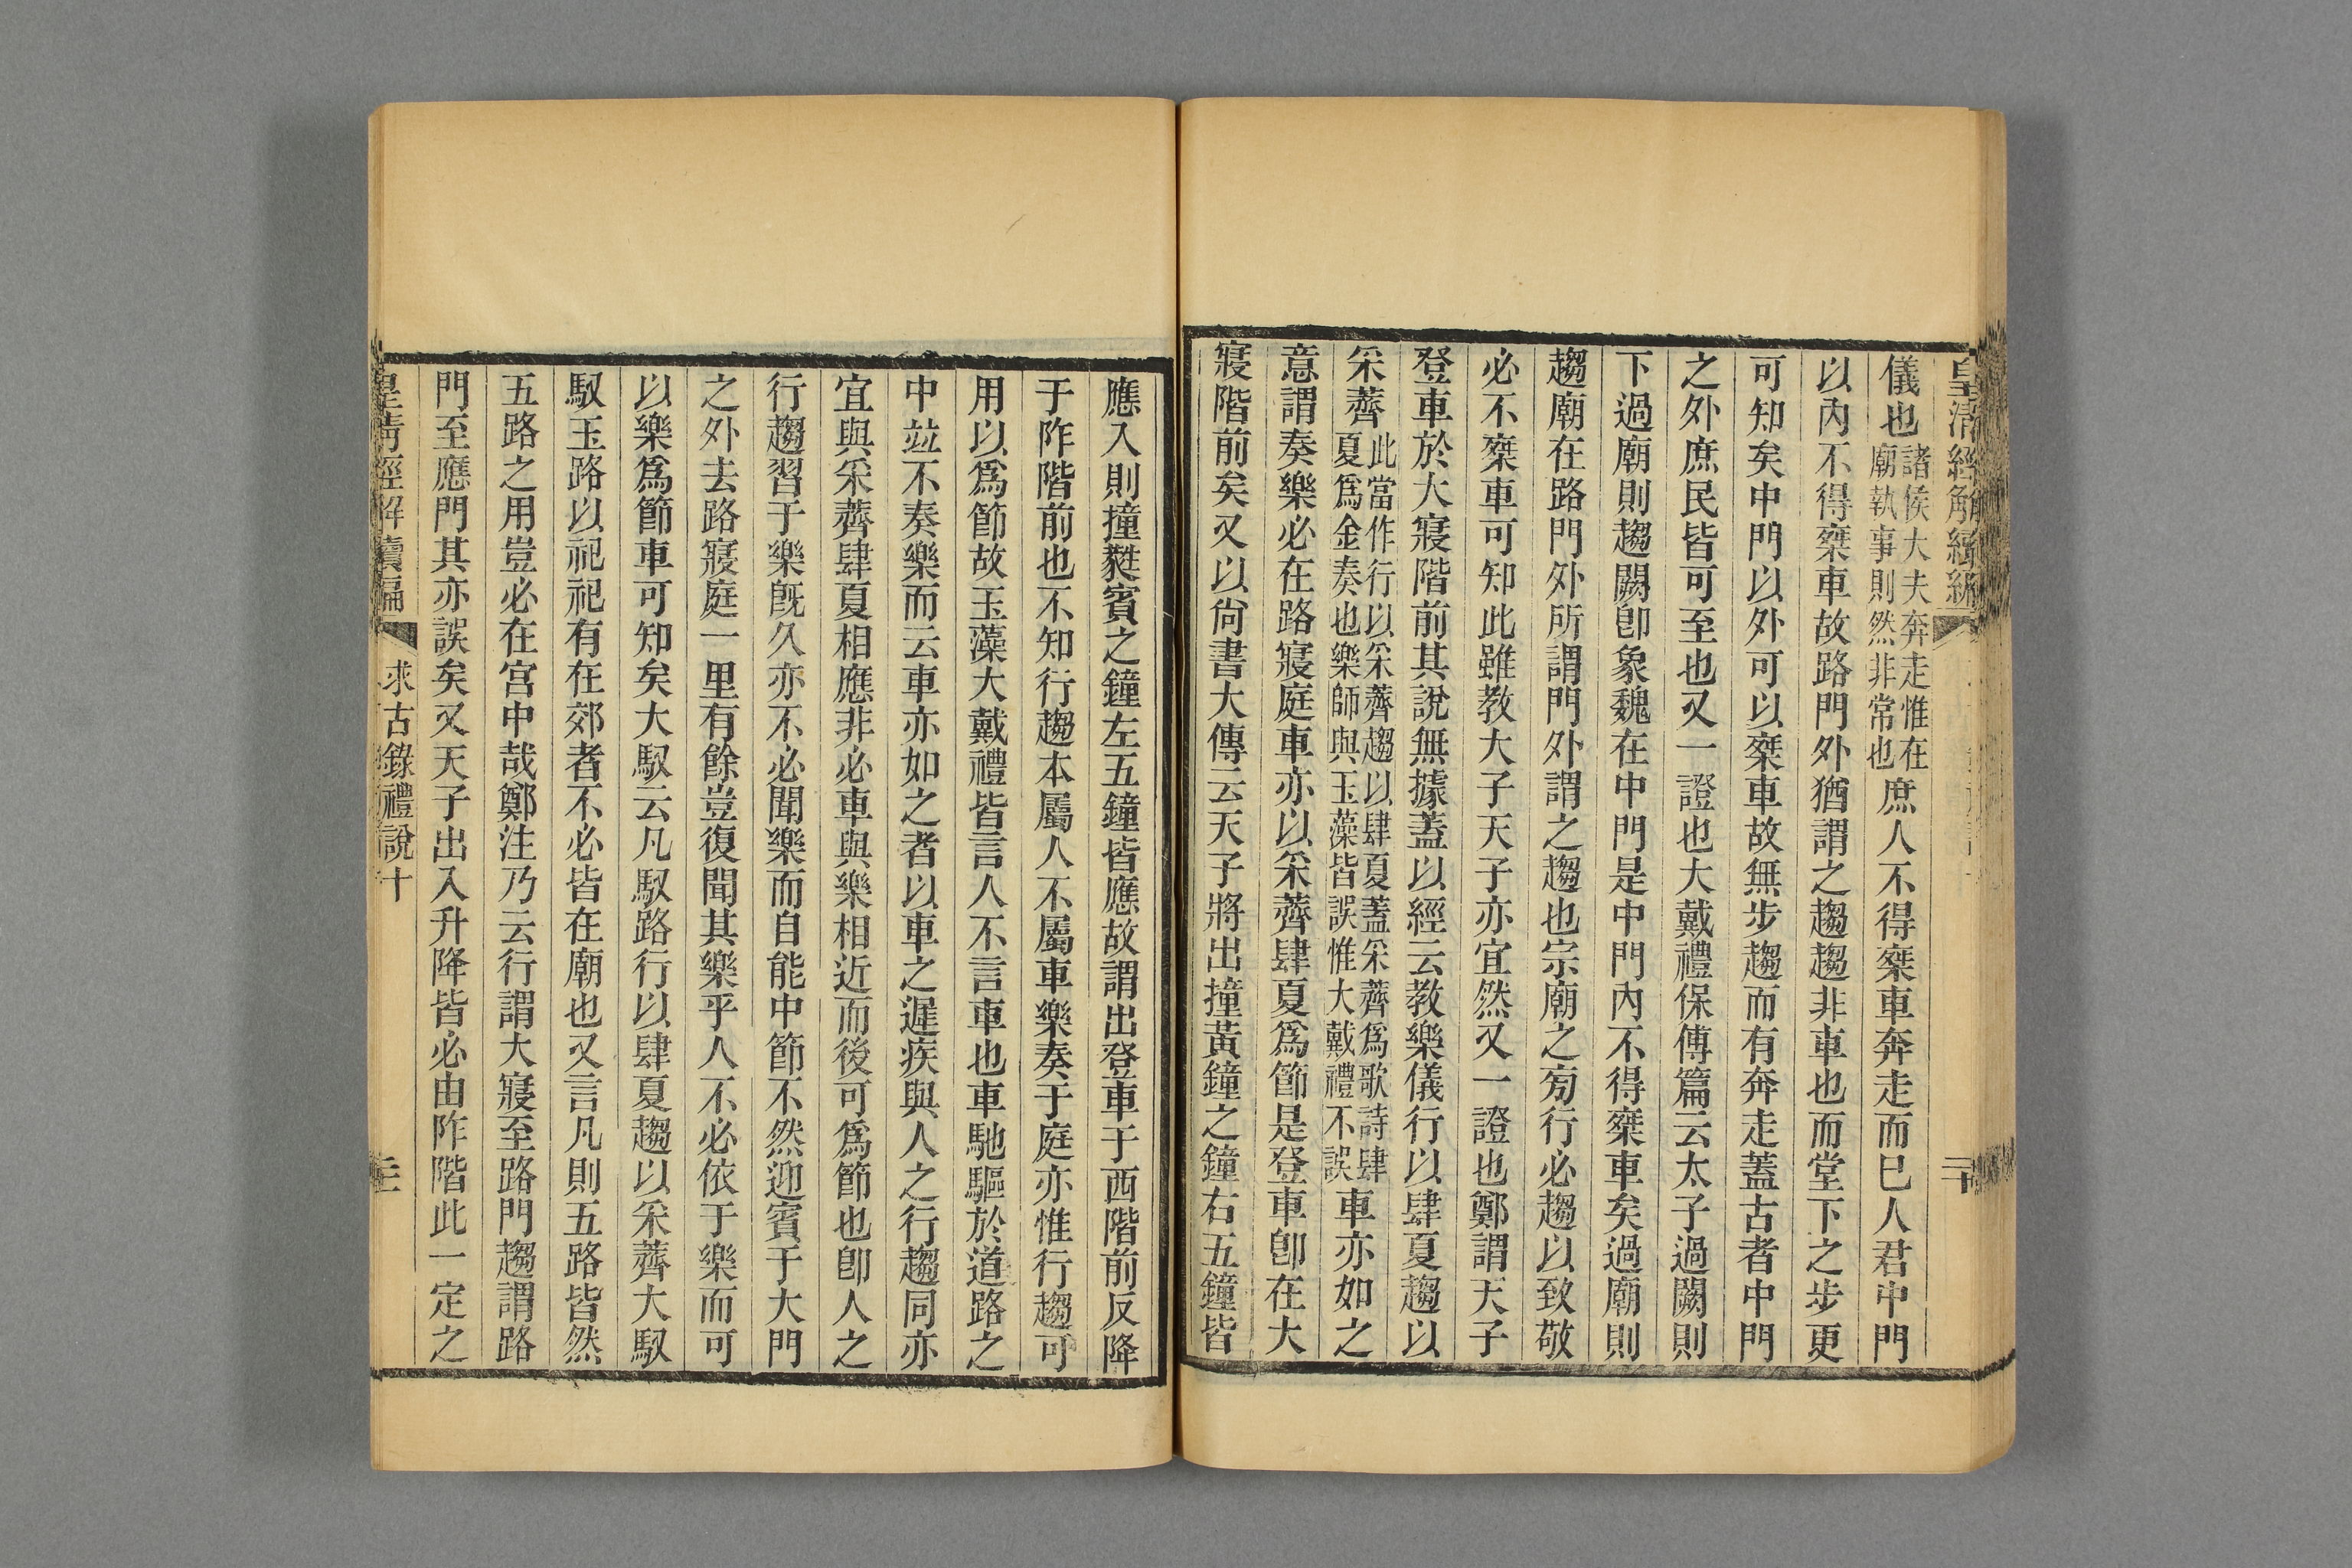 皇清經解續編
二十
儀也諸侯大夫奔走惟在廟執事則然非常也庶人不得椉車奔走而已人君中門
以內不得椉車故路門外猶謂之趨趨非車也而堂下之步更
可知矣中門以外可以椉車故無步趨而有奔走蓋古者中門
之外庶民皆可至也又一證也大戴禮保傅篇云太子過闕則
下過廟則趨闕卽象魏在中門是中門內不得椉車矣過廟則
趨廟在路門外所謂門外謂之趨也宗廟之㫄行必趨以致敬
必不椉車可知此雖教大子天子亦宜然又一證也鄭謂天子
登車於大寢階前其說無據蓋以經云教樂儀行以肆夏趨以
采薺此當作行以采薺趨以肆夏蓋采薺爲歌詩肆夏爲金奏也樂師與玉藻皆誤惟大戴禮不誤車亦如之
意謂奏樂必在路寢庭車亦以采薺肆夏爲節是登車卽在大
寢階前矣又以尙書大傳云天子將出撞黃鐘之鐘右五鐘皆
應入則撞蕤賓之鐘左五鐘皆應故謂出登車于西階前反降
于阼階前也不知行趨本屬人不屬車樂奏于庭亦惟行趨可
用以爲節故玉藻大戴禮皆言人不言車也車馳驅於道路之
中竝不奏樂而云車亦如之者以車之遲疾與人之行趨同亦
宜與采薺肆夏相應非必車與樂相近而後可爲節也卽人之
行趨習于樂旣久亦不必聞樂而自能中節不然迎賓于大門
之外去路寢庭一里有餘豈復聞其樂乎人不必依于樂而可
以樂爲節車可知矣大馭云凡馭路行以肆夏趨以采薺大馭
馭玉路以祀祀有在郊者不必皆在廟也又言凡則五路皆然
五路之用豈必在宮中哉鄭注乃云行謂大寢至路門趨謂路
門至應門其亦誤矣又天子出入升降皆必由阼階此一定之
皇清經解續編
求古錄禮說十
三